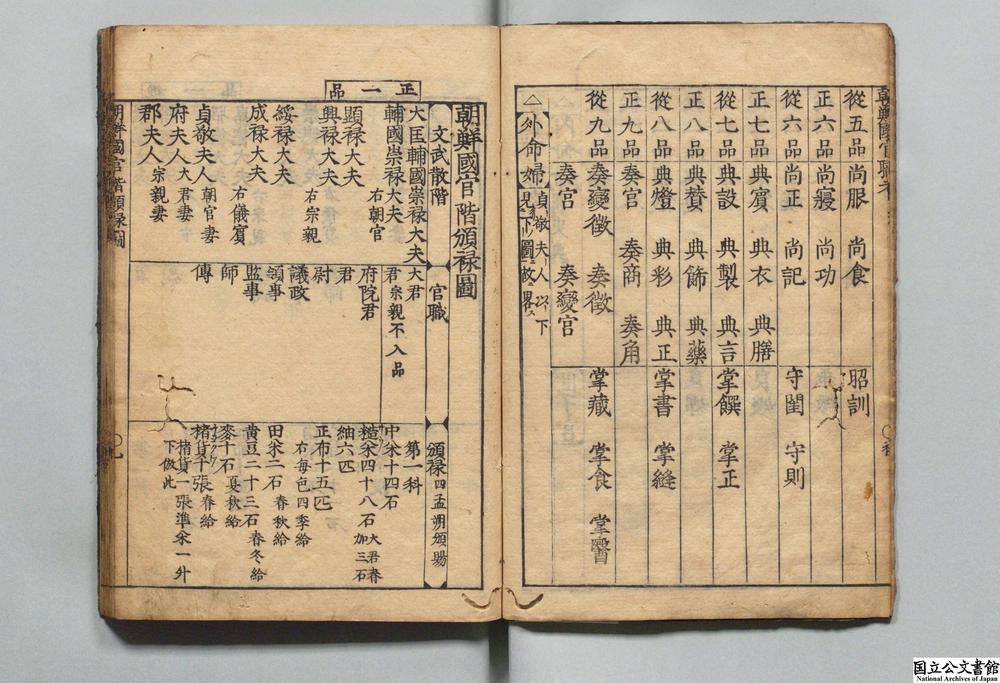 朝鮮國官職考
從五品 尚服 尚食 昭訓
正六品 尚寢 尚功
從六品 尚正 尚記 守閨 守則
正七品 典賓 典衣 典膳
從七品 典設 典製 典言 掌饌 掌正
正八品 典賛 典飾 典藥
從八品 典燈 典彩 典正 掌書 掌縫
正九品 奏官 奏商 奏角
從九品 奏變徵 奏徵 掌藏 掌食 掌醫
奏宮 奏變宮
外命婦 貞敬夫人以下
見下圖故畧
朝鮮國官階頒禄圖
正一品
文武散階 官職 頒禄 四孟朔頒賜
大匡輔國崇禄大夫
輔國崇禄大夫
右朝官
顯禄大夫
興禄大夫
右宗親
綏禄大夫
成禄大夫
右儀賓
貞敬夫人 朝官妻
府夫人 大君妻
郡夫人 宗親妻
大君
君 宗親不入品
府院君
君
尉
議政
領事
監事
師
傅
第一科
中米十四石
糙米四十八石 大君春加三石
紬六匹
正布十五匹
右每色四季給
田米二石 春秋給
黄豆二十三石 春冬給
麥十石 夏秋給
楮貨十張 春給
楮貨一張準米一升
下倣此
朝鮮國官階頒禄圖
国立公文書館
National Archives of Japan